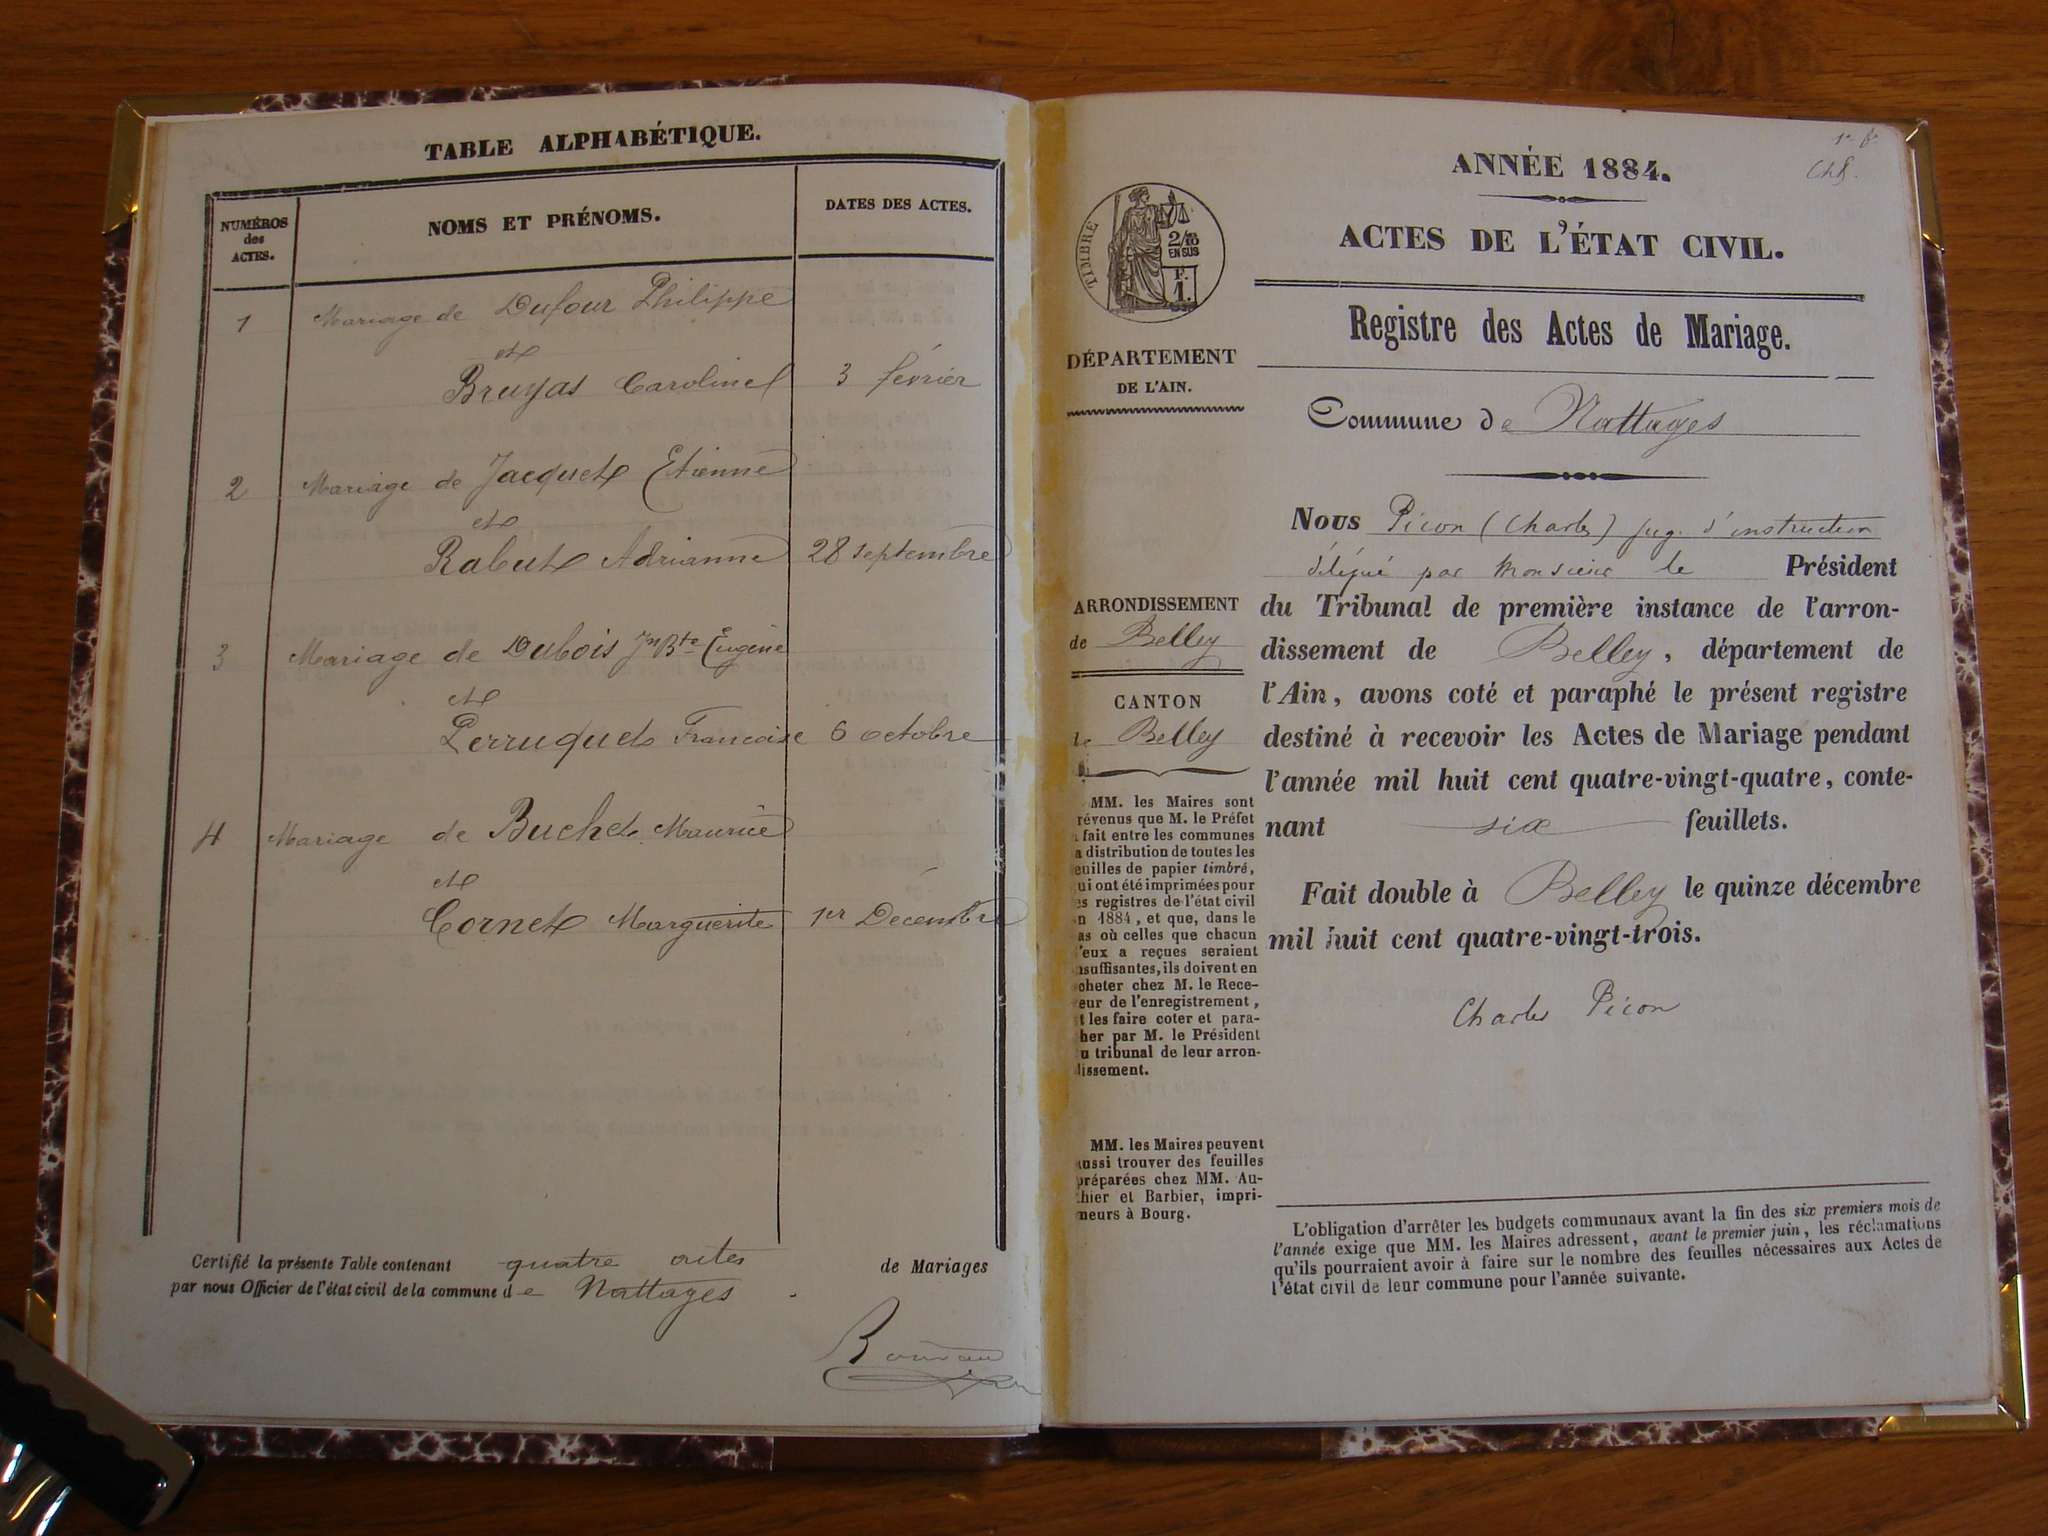 TABLE ALPHABÉTIQUE.
NUMÉROS
des
ACTES.
NOMS ET PRÉNOMS.
DATES DES ACTES.
1 Mariage de Dufour Philippe
et
Bruyas Caroline 3 février
2 Mariage de Jacquet Etienne
et
Rabut Adrianne 28 septembre
3 Mariage de Dubois Jn Bte Eugène
et
Perruquet Francoise 6 octobre
4 Mariage de Buchet Maurice
et
Cornet Marguerite 1er Décembre
Certifié la présente Table contenant quatre actes de Mariages
par nous Officier de l'état civil de la commune de Nattages.
ANNÉE 1884.
ACTES DE L'ÉTAT CIVIL.
TIMBRE
2/10
EN SUS
F.
1.
Registre des Actes de Mariage.
DÉPARTEMENT
DE L'AIN.
Commune de Nattages
ARRONDISSEMENT
de Belley
CANTON
de Belley
MM. les Maires sont
révenus que M. le Préfet
fait entre les communes
a distribution de toutes les
euilles de papier timbré,
ui ont été imprimées pour
es registres de l'état civil
n 1884, et que, dans le
as où celles que chacun
'eux a reçues seraient
nsuffisantes, ils doivent en
cheter chez M. le Rece-
eur de l'enregistrement,
t les faire coter et para-
her par M. le Président
u tribunal de leur arron-
dissement.
MM. les Maires peuvent
aussi trouver des feuilles
préparées chez MM. Au-
thier et Barbier, impri-
meurs à Bourg.
Nous Picon (Charles) jug. d'instruction
délégué par Monsieur le Président
du Tribunal de première instance de l'arron-
dissement de Belley, département de
l'Ain, avons coté et paraphé le présent registre
destiné à recevoir les Actes de Mariage pendant
l'année mil huit cent quatre-vingt-quatre, conte-
nant six feuillets.
Fait double à Belley le quinze décembre
mil huit cent quatre-vingt-trois.
Charles Picon
L'obligation d'arrêter les budgets communaux avant la fin des six premiers mois de
l'année exige que MM. les Maires adressent, avant le premier juin, les réclamations
qu'ils pourraient avoir à faire sur le nombre des feuilles nécessaires aux Actes de
l'état civil de leur commune pour l'année suivante.